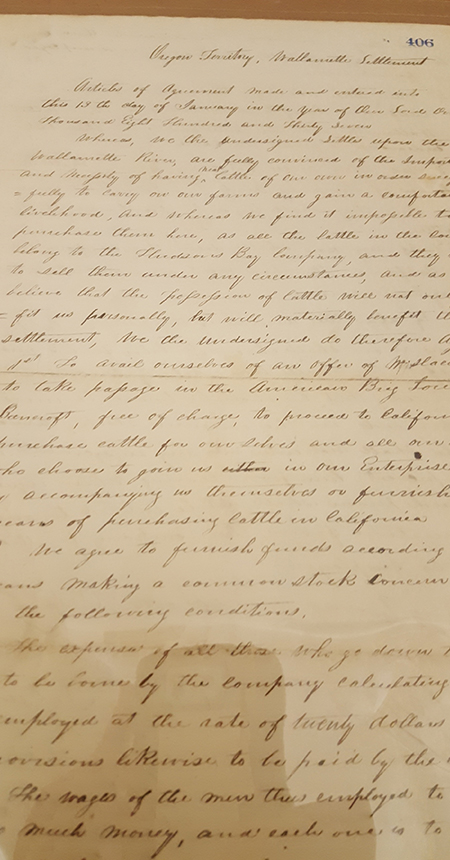 406
Oregon Territory, Wallamette Settlement
Articles of Agreement made and entered into
this 13th day of January in the year of Our Lord On
Thousand Eight Hundred and Thirty Seven
Whereas, we the undersigned settled upon the
Wallamette River, are fully convinced of the Impor
and necessity of having neat cattle of our own in order succe
=fully to carry on our farms and gain a comfortab
livelihood, And whereas we find it impossible to
purchase them here, as all the cattle in the Cou
belong to the Hudsons Bay Company, and they
to sell them under any circumstances, and as
believe that the possession of cattle will not onl
=fit us personally, but will materially benefit th
settlement, We the undersigned do therefore ag
1st To avail ourselves of an offer of Mr Slac
to take passage in the American Brig Lori
Bancroft, free of charge, to proceed to Californ
purchase cattle for ourselves and all our
who choose to join us in our Enterprise
accompanying us themselves or furnish
eans of purchasing cattle in California
We agree to furnish funds according
eans making a common stock Concern
the following conditions.
The expense of all those who go down
to be borne by the Company calculating
employed at the rate of twenty dollars
rovisions likewise to be paid by the
The wages of the men thus employed to
much money, and each one is to